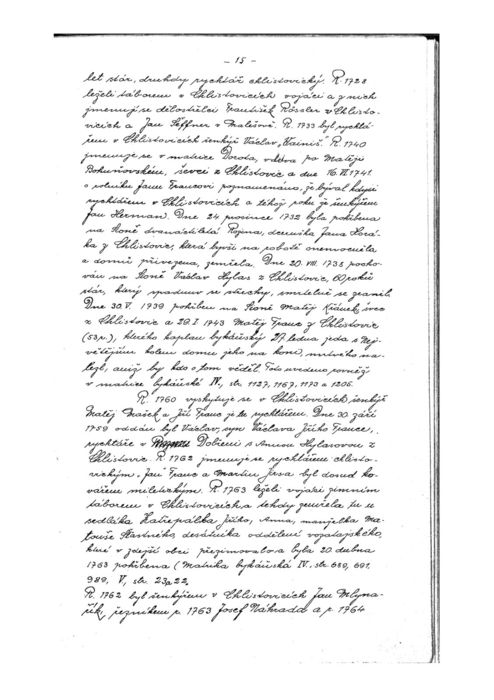 - 15 -
let stár, druhdy rychtář chlistovický. R. 1728
leželi táborem v Chlistovicích vojáci a z nich
jmenují se dělostřelci František Rössler v Chlisto-
vicích a Jan Seffner v Malešově. R. 1733 byl rychtá-
řem v Chlistovicích šenkýř Václav „Vaniš". R. 1740
jmenuje se v matrice Dorota, vdova po Matěji
Bohuňovském, ševci z Chlistovic a dne 16. VI. 1741.
o rolníku Janu Francovi poznamenáno, že býval kdysi
rychtářem v Chlistovicích a téhož roku je šenkýřem
Jan Herman. Dne 24. prosince 1732 byla pohřbena
na Roně dvanáctiletá Rozina, dceruška Jana Horá-
ka z Chlistovic, která byvši na robotě onemocněla
a domů přivezena, zemřela. Dne 20. VIII. 1735 pocho-
ván na Roně Václav Hylas z Chlistovic, 60 roků
stár, který spadnuv se střechy, smrtelně se zranil.
Dne 30. V. 1739 pohřben na Roně Matěj švec
z Chlistovic a 28. I. 1743 Matěj Franc z Chlistovic
(53 r.), kterého kaplan bykáňský 27. ledna jeda s nej-
světějším kolem domu jeho na koni, mrtvého na-
lezl, aniž by kdo o tom věděl. Toto uvedeno rovněž
v matrice bykáňské IV., str. 1127, 1167, 1173 a 1206.
R. 1760 vyskytuje se v Chlistovicích šenkýř
Matěj Mašek a Jiří Franc je tu rychtářem. Dne 30. září
1759 oddán byl Václav, syn Václava Jiřího France,
rychtáře v Dobřeni s Annou Hylasovou z
Chlistovic. R. 1762 jmenuje se rychtářem chlisto-
vickým Jan Franc a Martin Jirsa byl dosud ko-
vářem miletickým. R. 1763 leželi vojáci zimním
táborem v Chlistovicích a tehdy zemřela tu u
sedláka Jiříka, Anna, manželka Ma-
touše Šťastného, desátníka oddělení vozatajského,
které v zdejší obci přezimovalo a byla 20. dubna
1763 pohřbena (Matrika bykáňská IV, str. 689, 691.
989, V, str. 23, 22.
R. 1762 byl šenkýřem v Chlistovicích Jan Mlyna-
řík, řezníkem r. 1763 Josef Náhrada a r. 1764